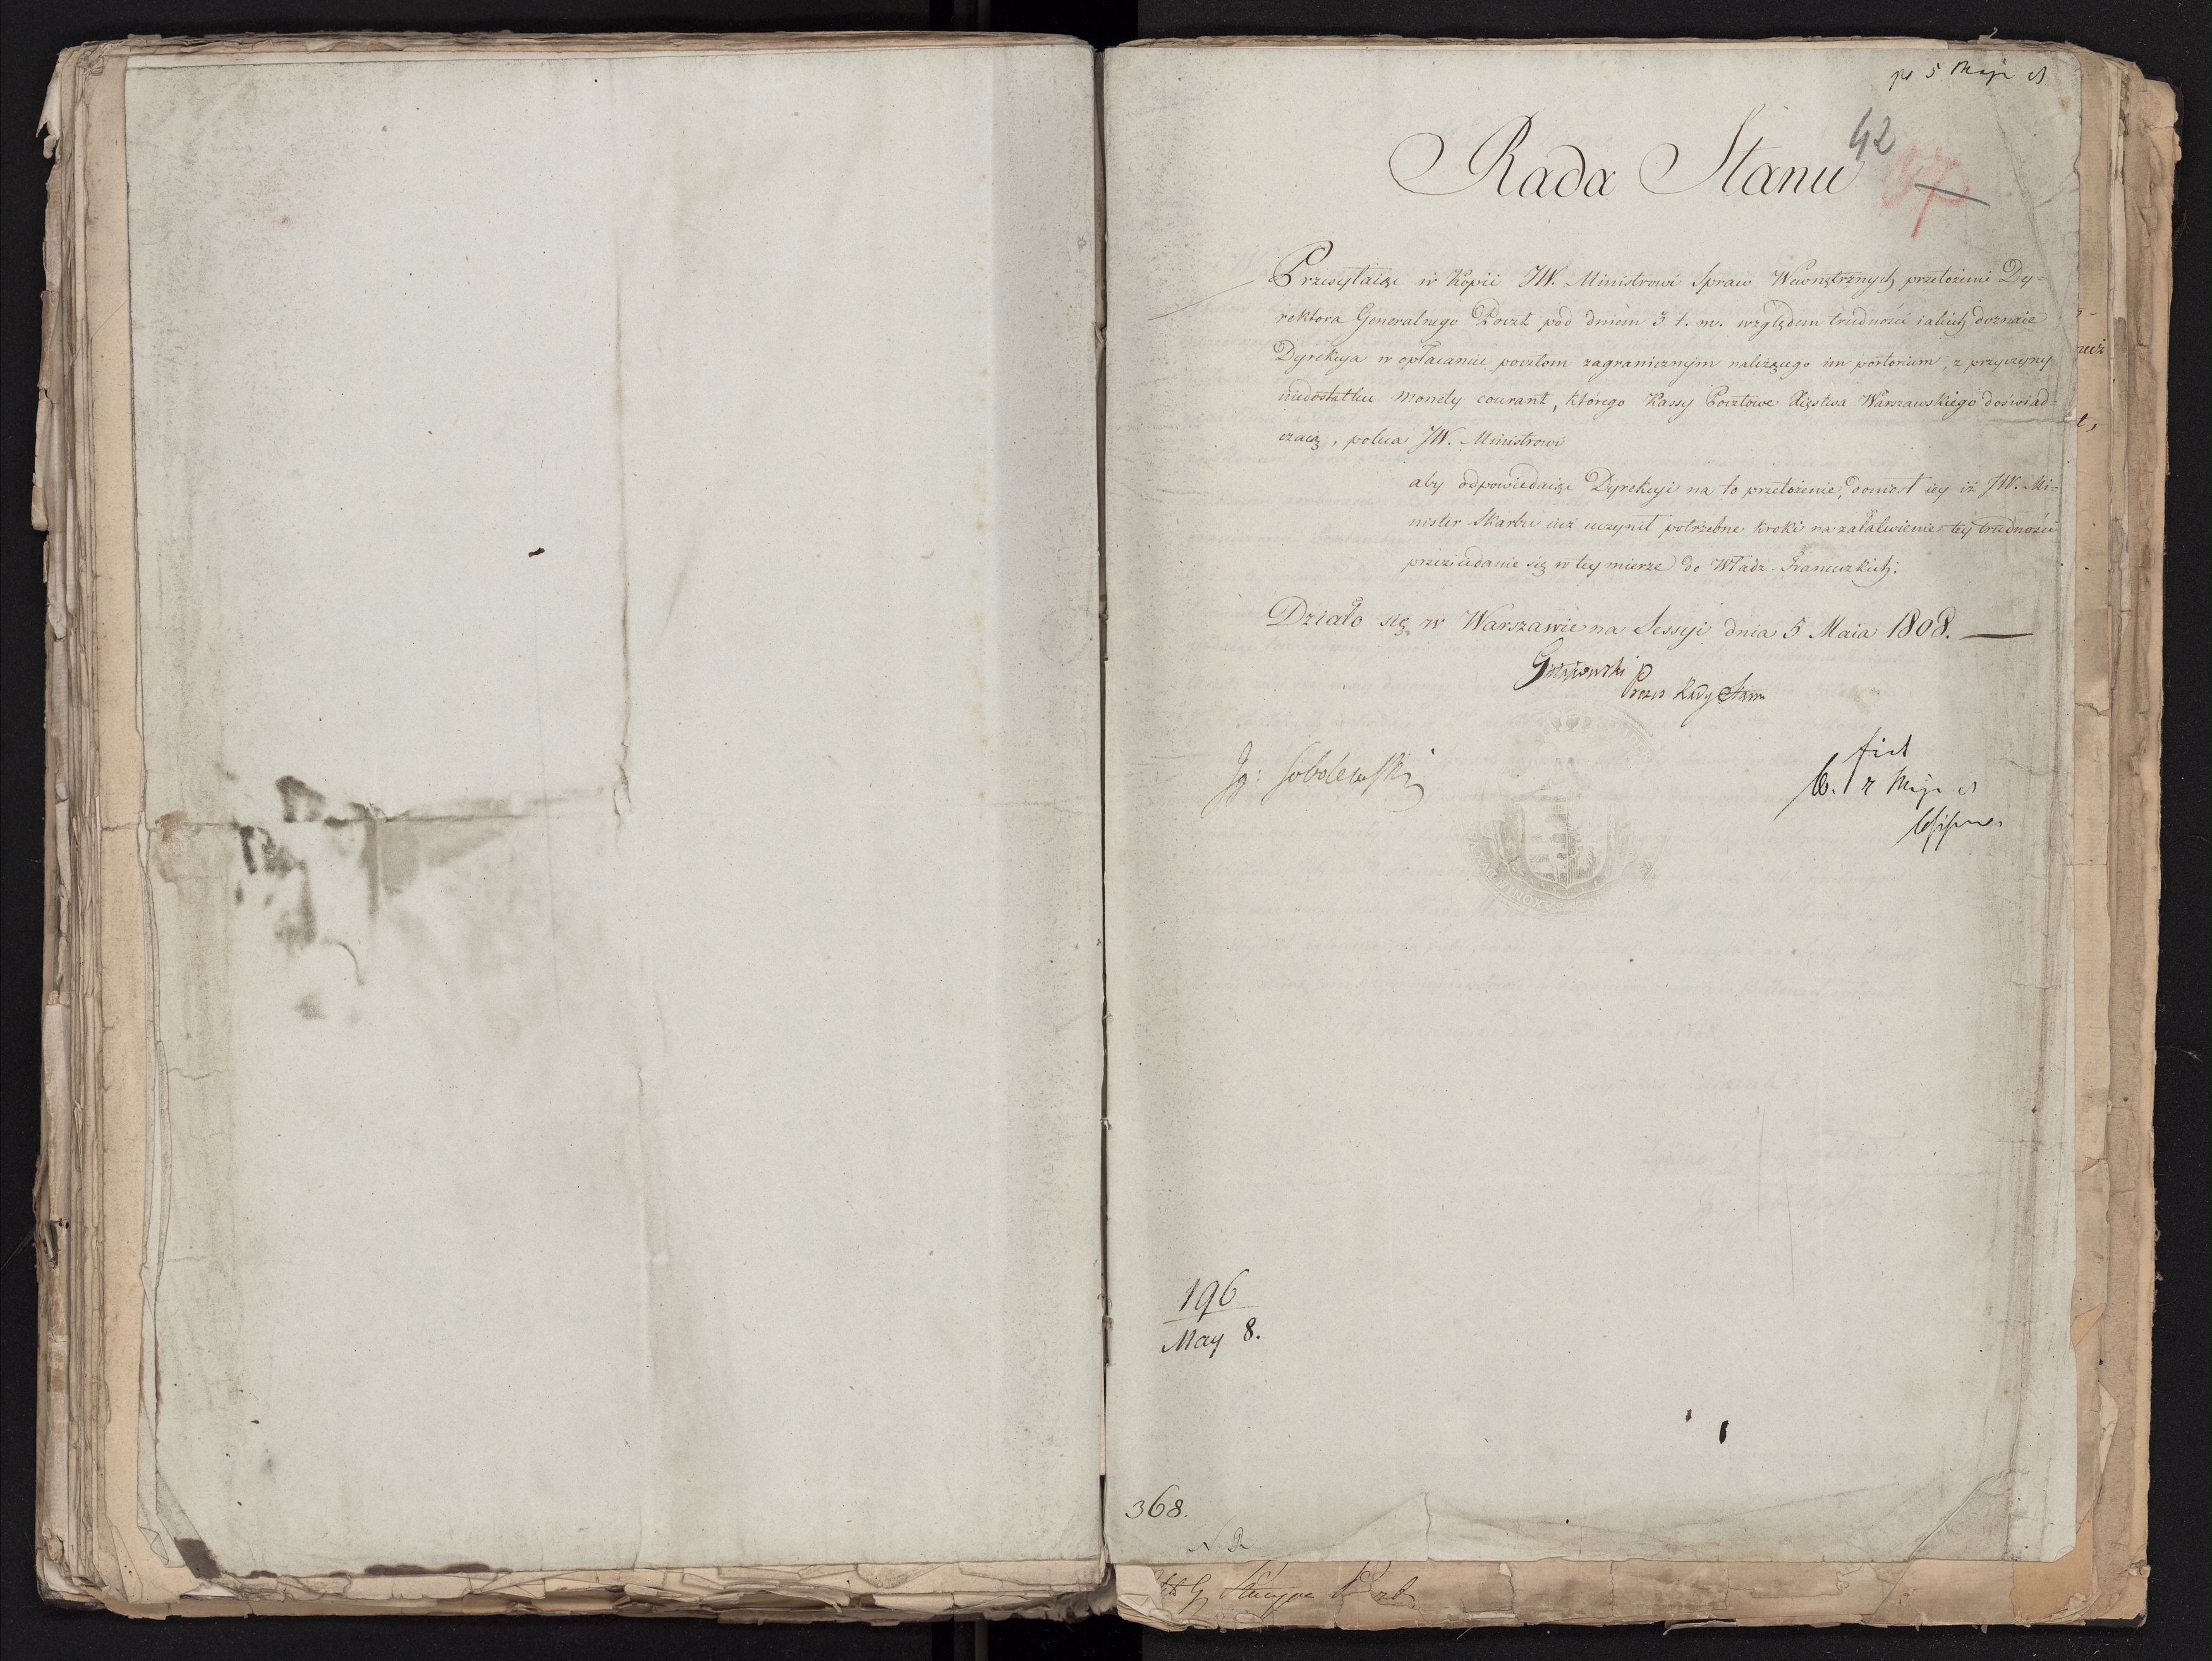 5 Maja
42
Rada Stanu
Przesyłaiąc w Kopii JW. Ministrowi Spraw Wewnętrznych przełożenie Dy=
rektora Generalnego Poczt pod dniem 3 t. m. względem trudności iakich doznaie
Dyrekcya w opłacaniu pocztom zagranicznym należącego im portorium, z przyczyny
niedostatku Monety courant, którego Kassy Pocztowe Xięstwa Warszawskiego doświad=
czaią, poleca JW. Ministrowi
aby odpowiedaiąc Dyrekcyi na to przełożenie, doniosł iey iż JW. Mi=
nister Skarbu iuż uczynił potrzebne kroki na załatwienie tey trudności
przez udanie się w tey mierze do Władz Francuzkich.
Działo się w Warszawie na Sessyi dnia 5 Maia 1808. —
Gutakowski P
Prezes Rady Stanu
Ig: Sobolewski
196
May 8.
368.